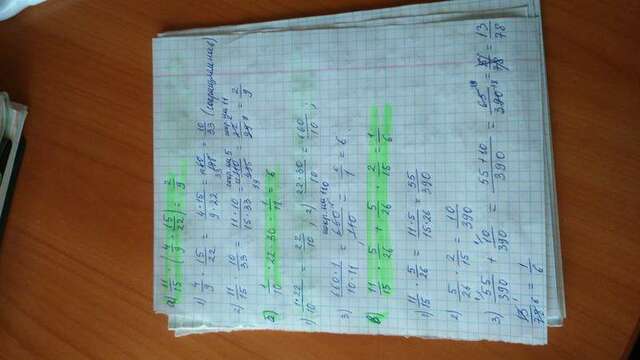 а) 11/15 · (4/9 · 15/22) = 2/9
1) 4/9 · 15/22 = 4·15/9·22 = 10/33 (сокращение)
2) 11/15 · 10/33 = 11·10/15·33 = 110/495 = 22/99 = 2/9
б) 1/10 · 22 · 30 · 1/11 = 6
1) 1·22/10 = 22/10; 2) 22·30/10 = 660/10;
3) 660·1/10·11 = 660/110 = 6/1 = 6.
в) 11/15 · 5/26 + 5/26 · 2/15 = 1/6
1) 11/15 · 5/26 = 11·5/15·26 = 55/390
2) 5/26 · 2/15 = 10/390
3) 55/390 + 10/390 = 55+10/390 = 65/390 = 13/78
13/78 = 1/6